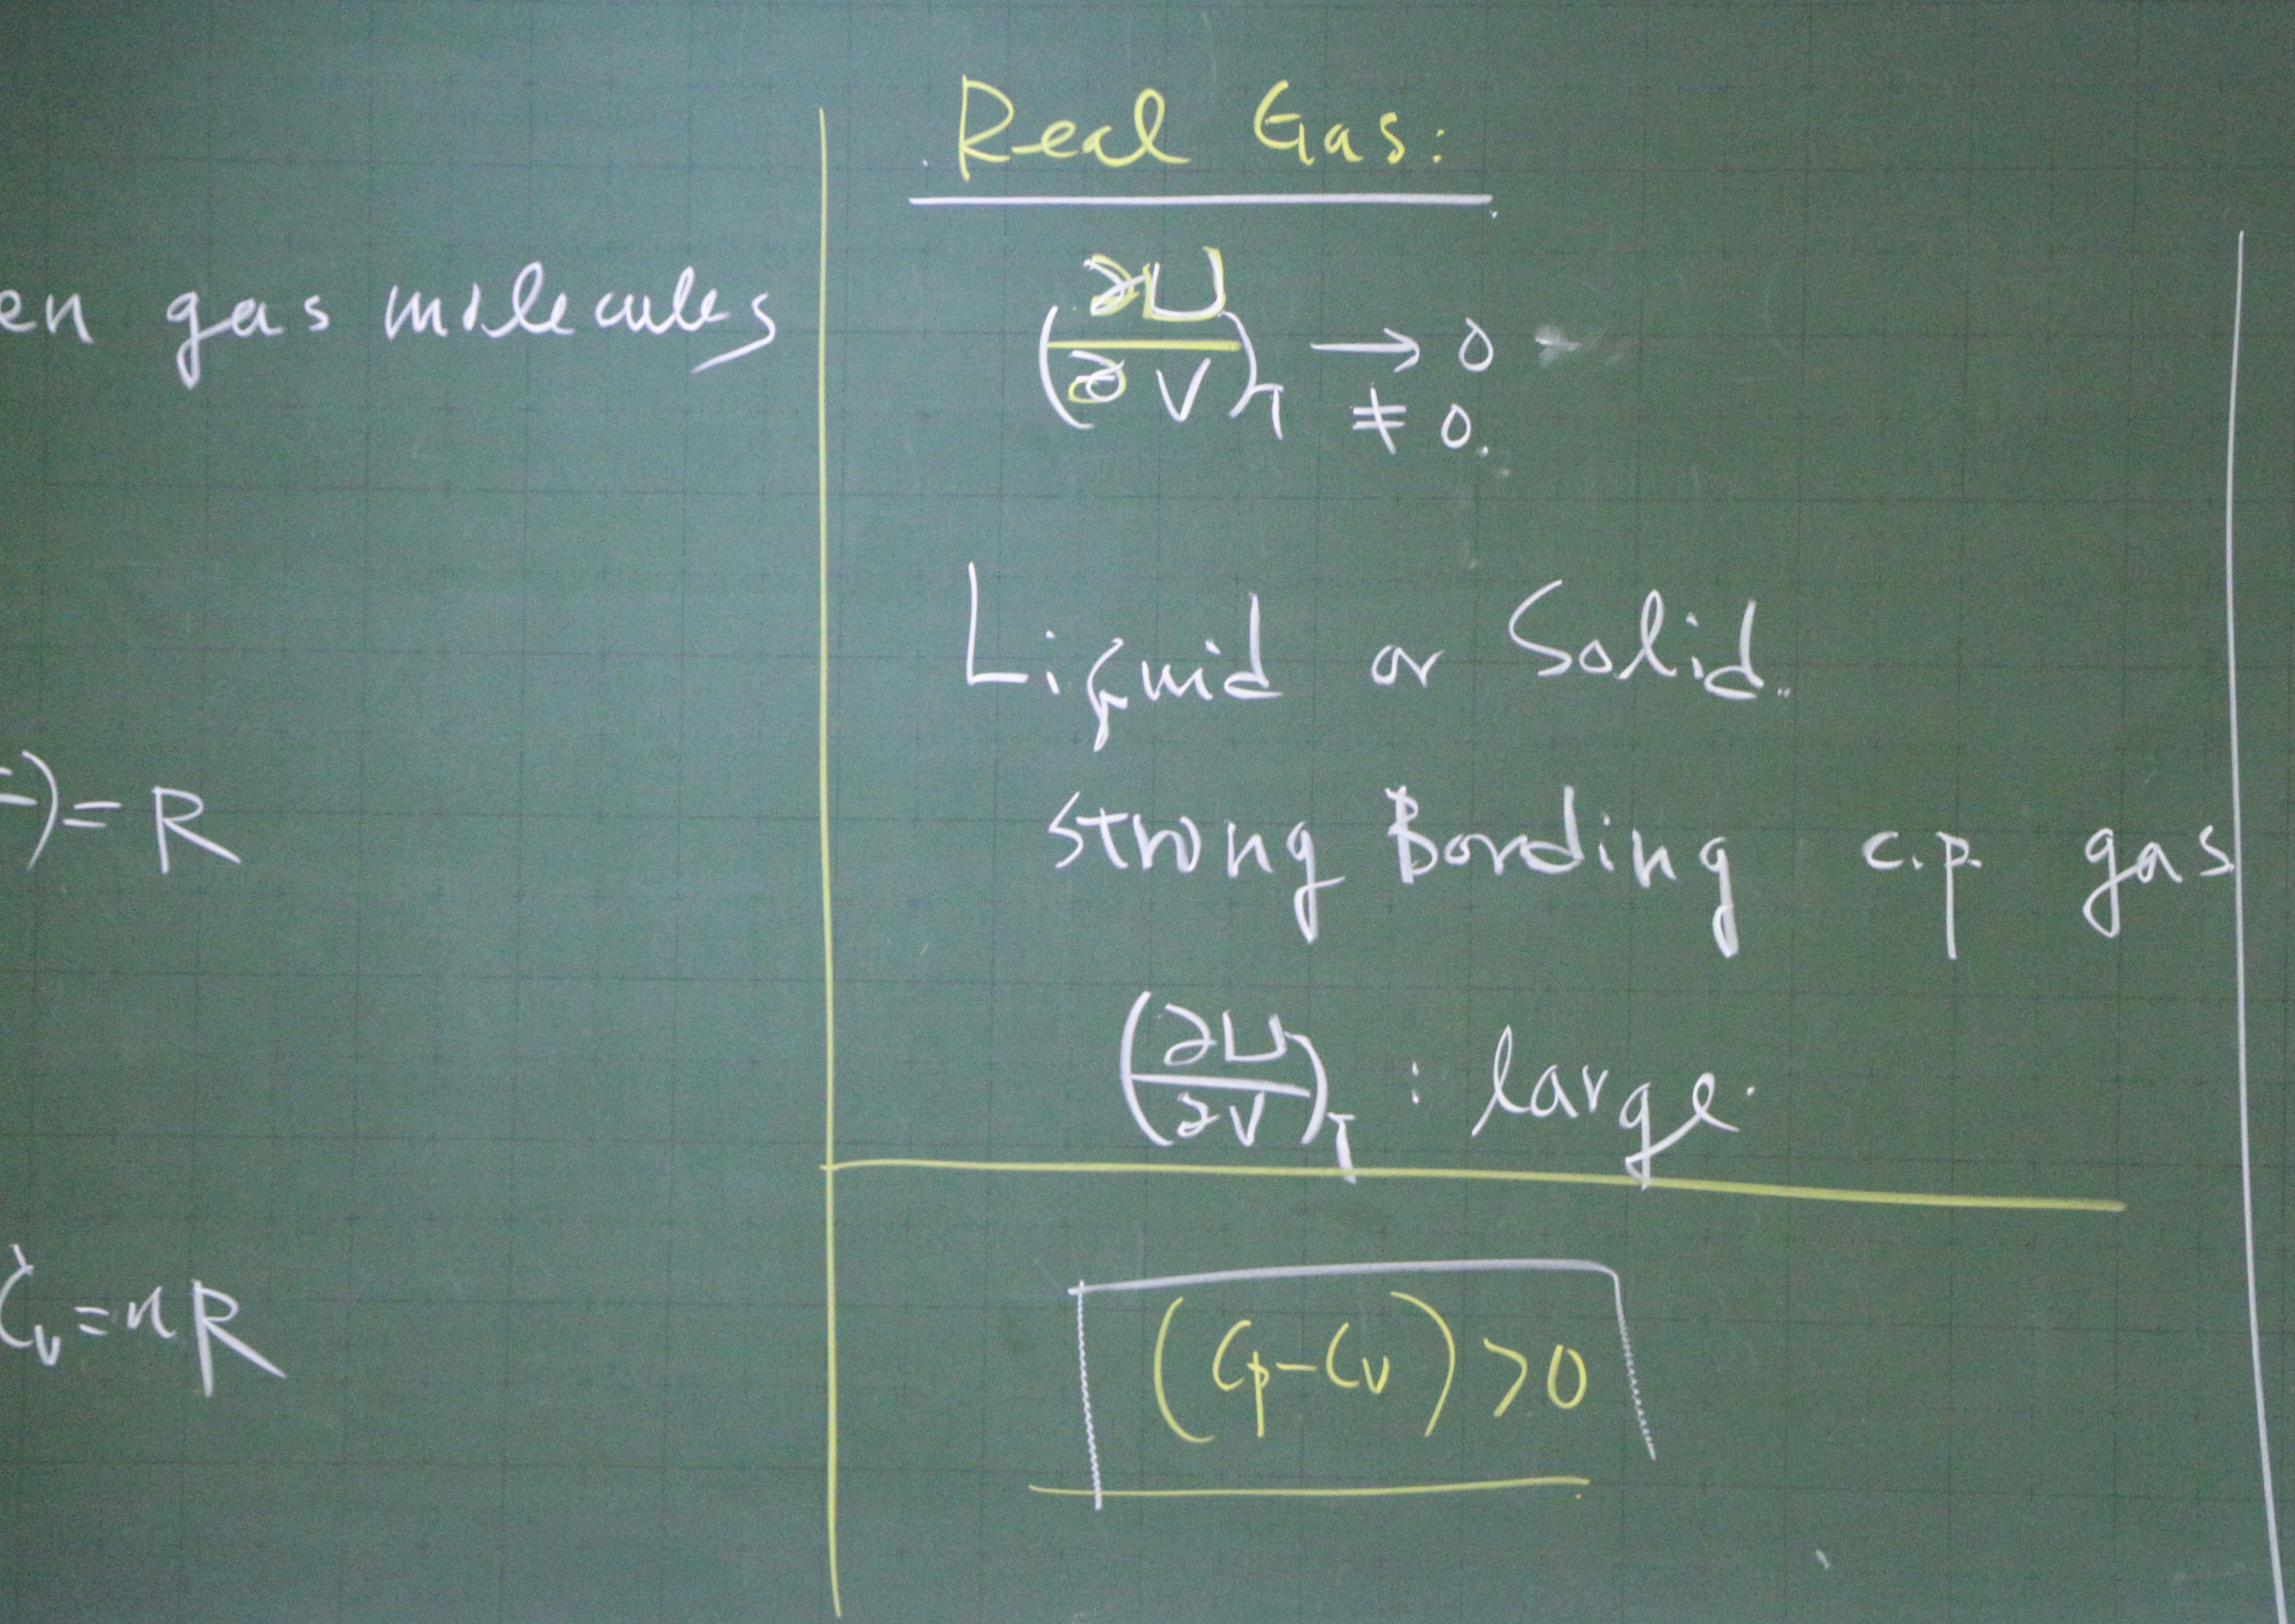 gas molecules
) = R
Cv = nR
Real Gas:
(∂U/∂V)T → 0
≠ 0.
Liquid or Solid.
strong Bonding c.p. gas
(∂U/∂V)T : large.
(Cp-Cv) >0